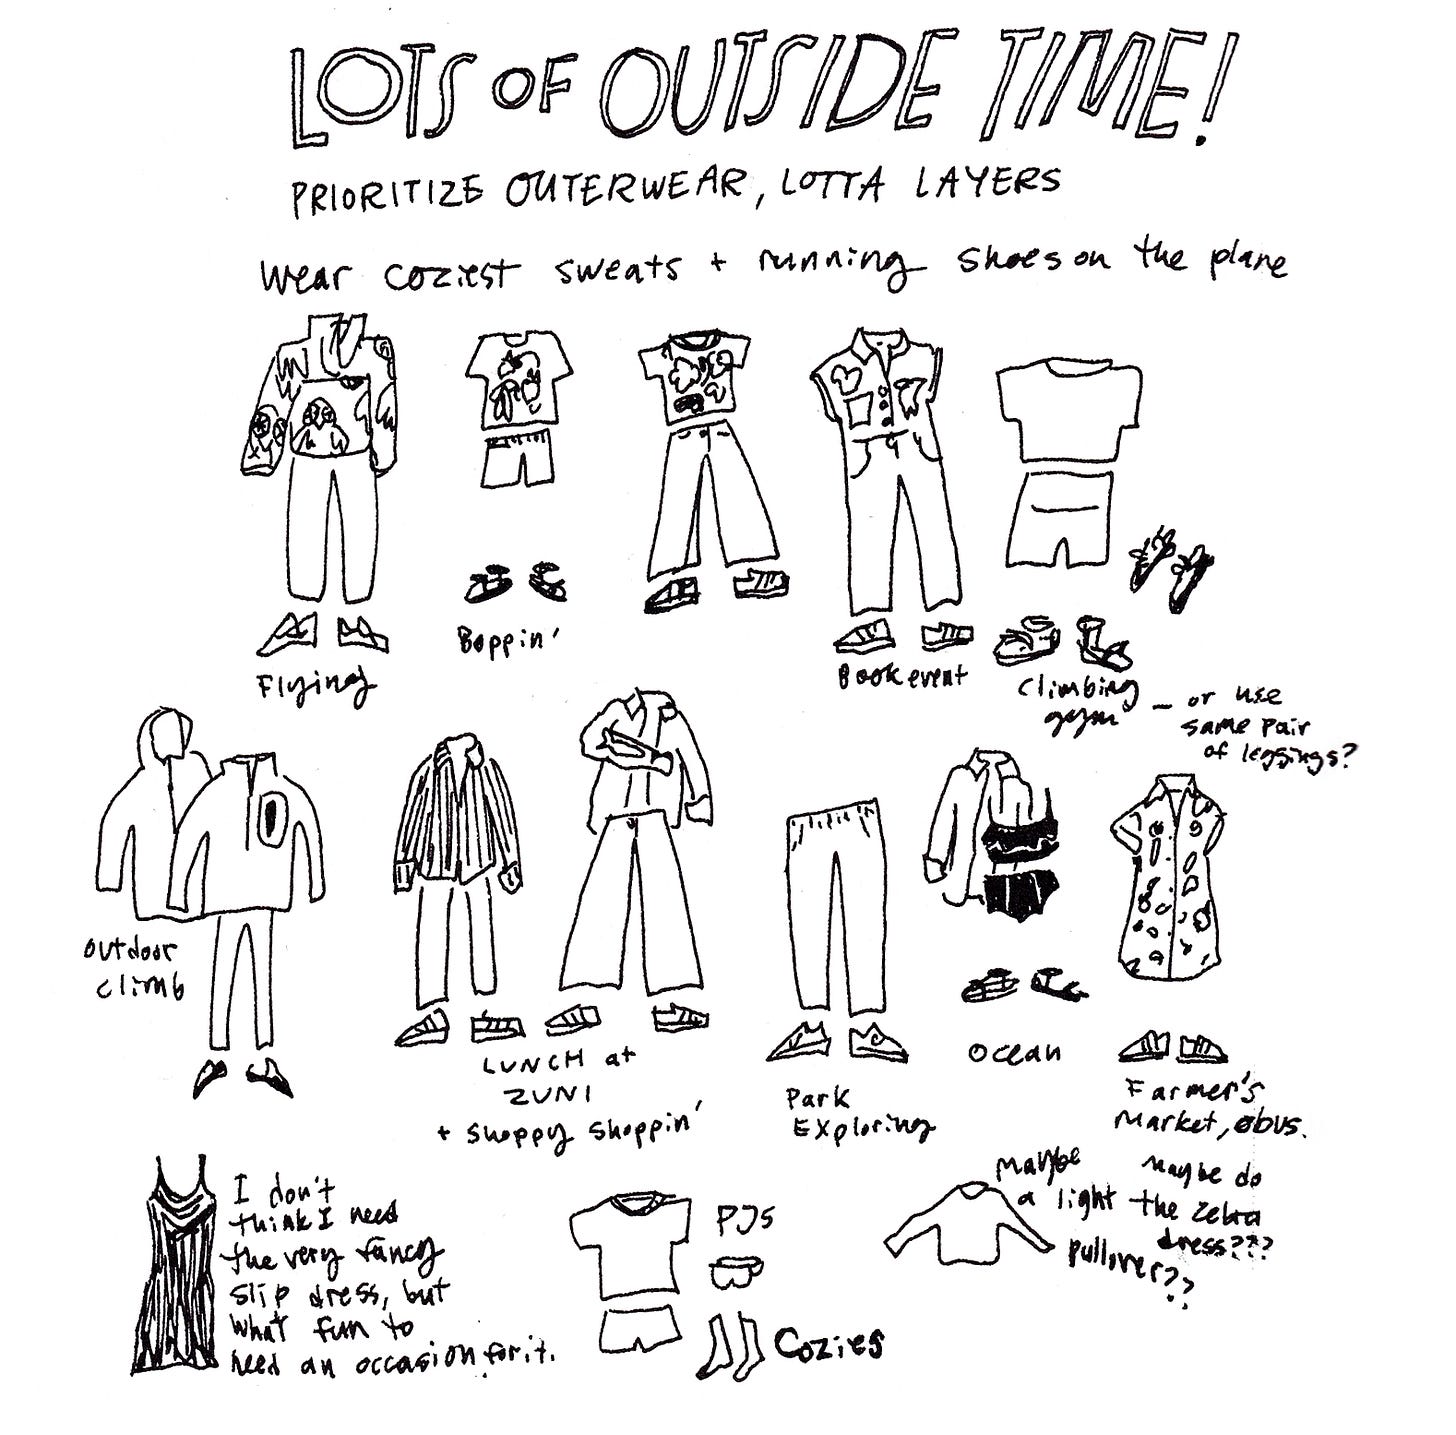 LOTS OF OUTSIDE TIME!
PRIORITIZE OUTERWEAR, LOTTA LAYERS
Wear coziest sweats + running shoes on the plane
Flying
Boppin'
Book event
Climbing
gym
— or use
same pair
of leggings?
outdoor
climb
LUNCH at
ZUNI
+ shoppy shoppin'
Park
Exploring
Ocean
Farmer's
Market, obvs.
I don't
think I need
the very fancy
slip dress, but
what fun to
need an occasion for it.
PJs
Cozies
Maybe
a light
pullover??
Maybe do
the zebra
dress???